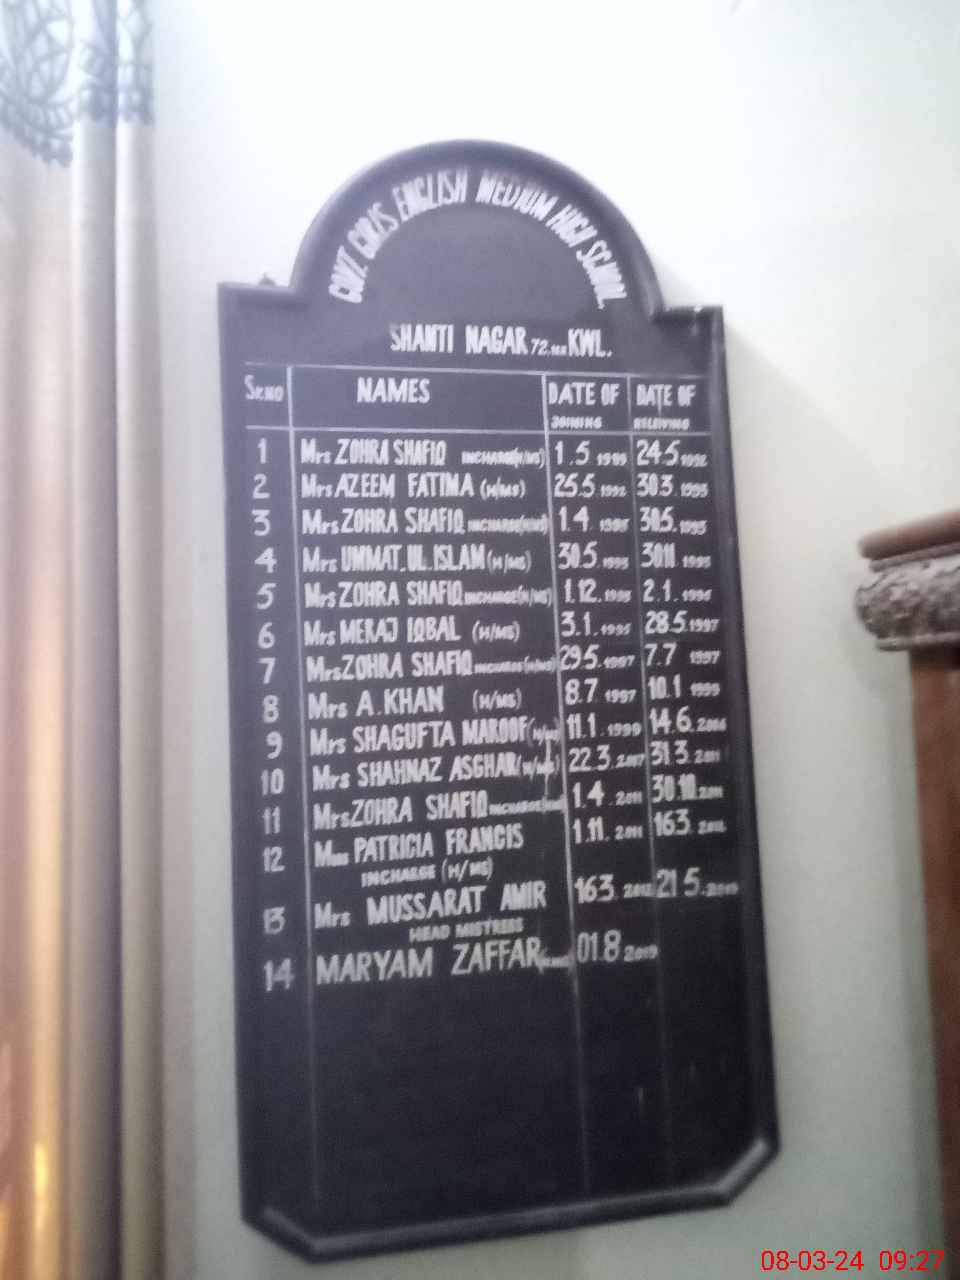 GOVT. GIRLS ENGLISH MEDIUM HIGH SCHOOL.
SHANTI NAGAR 72. KWL.
Sr.NO NAMES DATE OF JOINING DATE OF RELEIVING
1 Mrs ZOHRA SHAFIQ INCHARGE(H/MS) 1.5.1989 24.5.1992
2 Mrs AZEEM FATIMA (H/MS) 25.5.1992 30.3.1995
3 Mrs ZOHRA SHAFIQ INCHARGE(H/MS) 1.4.1995 30.5.1995
4 Mrs UMMAT.UL.ISLAM (H/MS) 30.5.1995 30.11.1995
5 Mrs ZOHRA SHAFIQ INCHARGE(H/MS) 1.12.1995 2.1.1996
6 Mrs MERAJ IQBAL (H/MS) 3.1.1995 28.5.1997
7 Mrs ZOHRA SHAFIQ INCHARGE(H/MS) 29.5.1997 7.7 1997
8 Mrs A.KHAN (H/MS) 8.7 1997 10.1 1999
9 Mrs SHAGUFTA MAROOF (H/MS) 11.1.1999 14.6.2006
10 Mrs SHAHNAZ ASGHAR (H/MS) 22.3.2007 31.3.2011
11 Mrs ZOHRA SHAFIQ INCHARGE(H/MS) 1.4.2011 30.10.2011
12 Miss PATRICIA FRANCIS 1.11.2011 16.3.2012
INCHARGE (H/MS)
13 Mrs MUSSARAT AMIR 16.3.2012 21.5.2019
HEAD MISTRESS
14 MARYAM ZAFFAR 01.8.2019
08-03-24 09:27